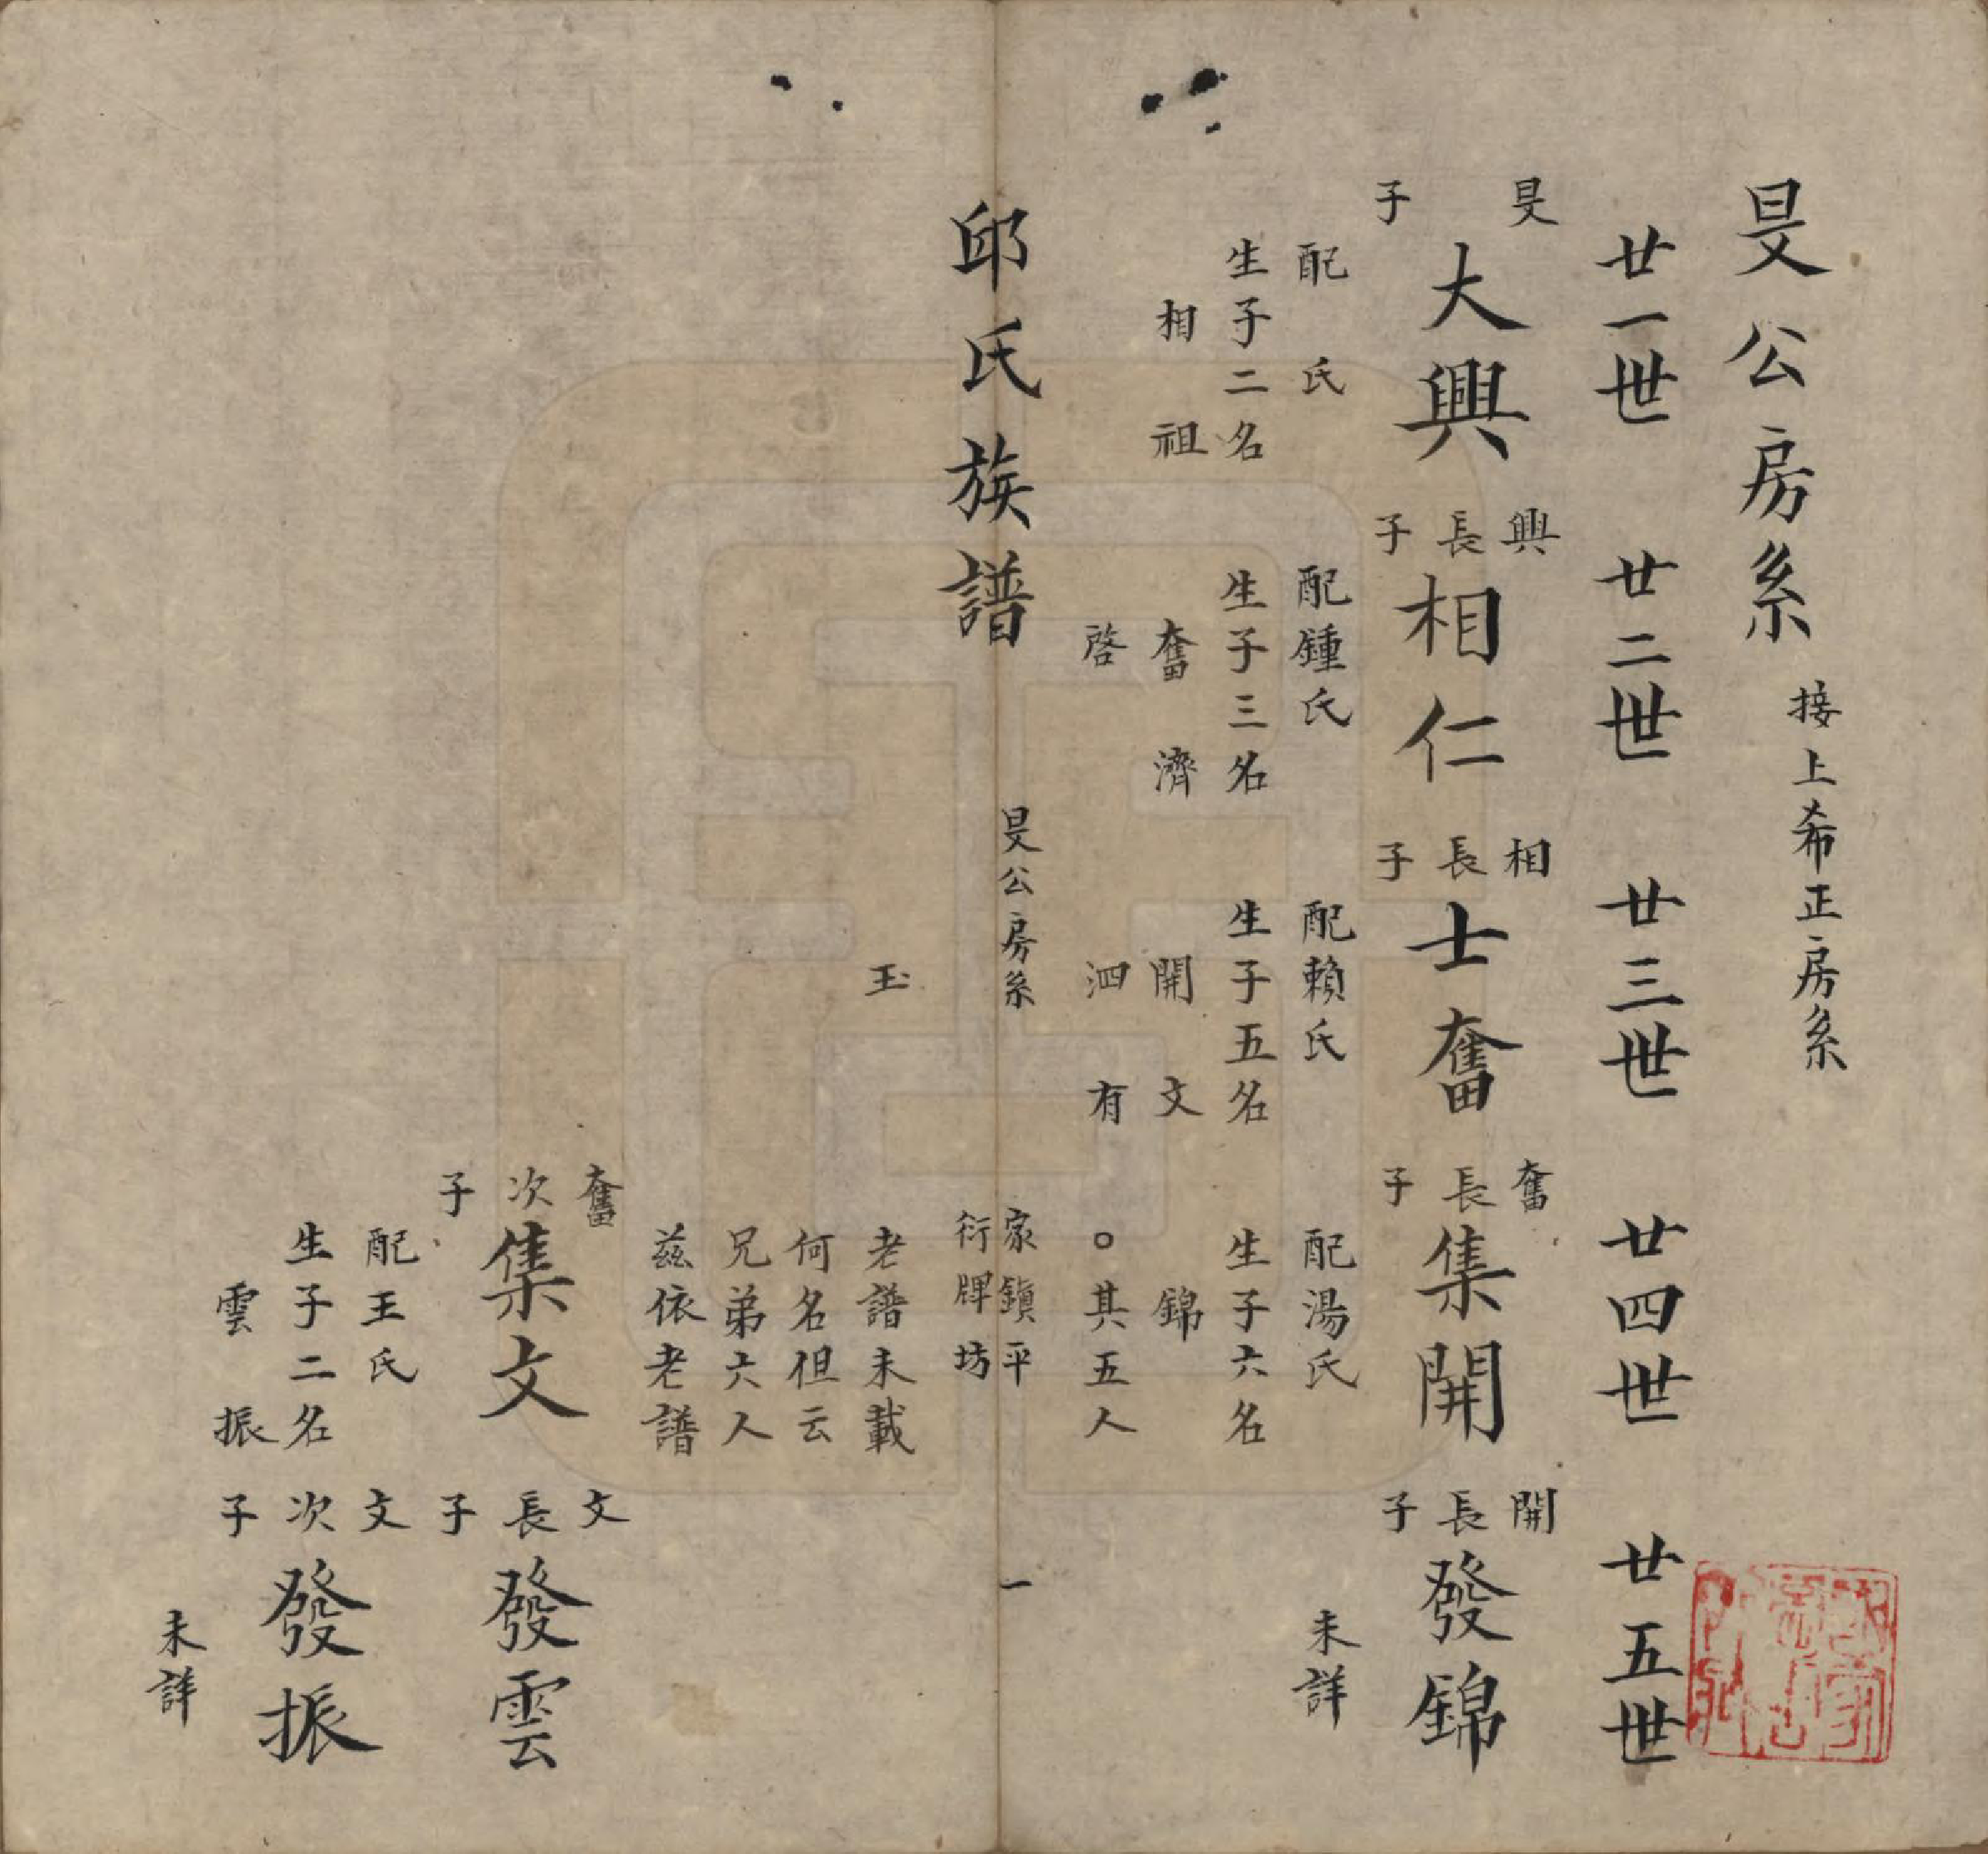 旻公房系 接上希正房系
廿一世 廿二世 廿三世 廿四世 廿五世
旻子 大興
配 氏
生子二名
相 祖
興長子 相仁
配鍾氏
生子三名
奮 濟
啓
相長子 士奮
配賴氏
生子五名
開 文
泗 有
玉
奮長子 集開
配湯氏
生子六名
錦
○其五人
老譜未載
何名但云
兄弟六人
茲依老譜
開長子 發錦
未詳
邱氏族譜 旻公房系 家鎮平 衍牌坊 一
奮次子 集文
配王氏
生子二名
雲 振
文長子 發雲
文次子 發振
未詳